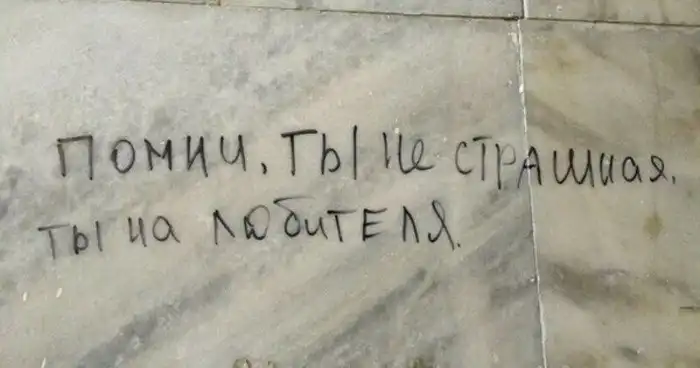 ПОМНИ, ТЫ НЕ СТРАШНАЯ,
ТЫ НА ЛЮБИТЕЛЯ.